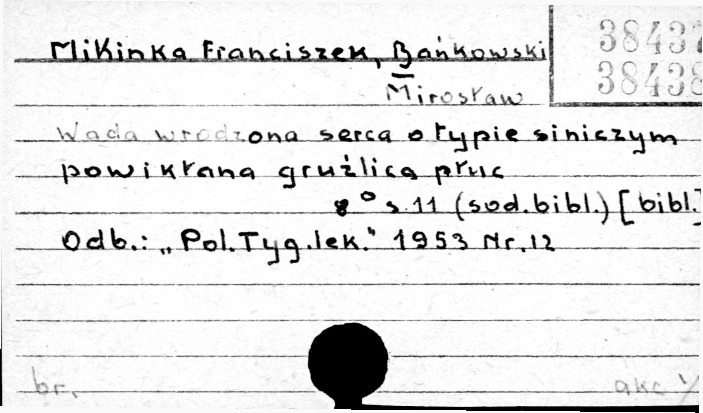 Mikinka Franciszek, Bańkowski
38437
38438
Mirosław
Wada wrodzona serca o typie siniczym
powikłana gruźlicą płuc
8° s.11 (sod.bibl.) [bibl.]
Odb.: „Pol.Tyg.lek." 1953 Nr.12
br.
akc